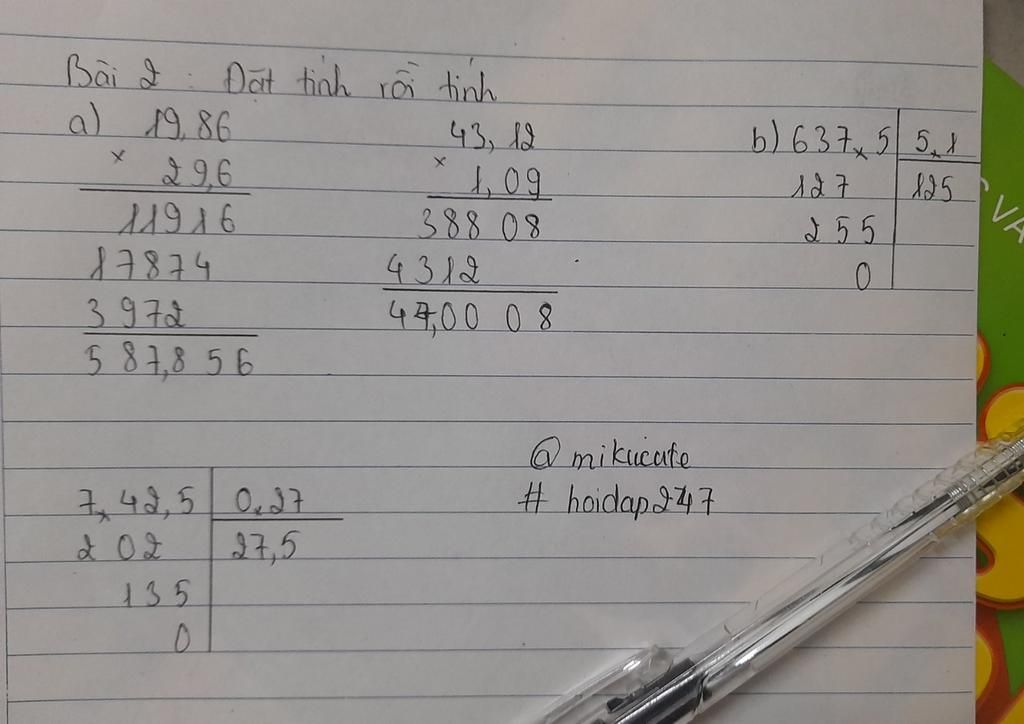 Bài 2 : Đặt tính rồi tính
a) 19,86
x 29,6
11916
17874
3972
587,856
43,12
x 1,09
38808
4312
47,0008
b) 637,5 5,1
127 125
255
0
7,42,5 0,27
202 27,5
135
0
@mikucute
# hoidap247
VA